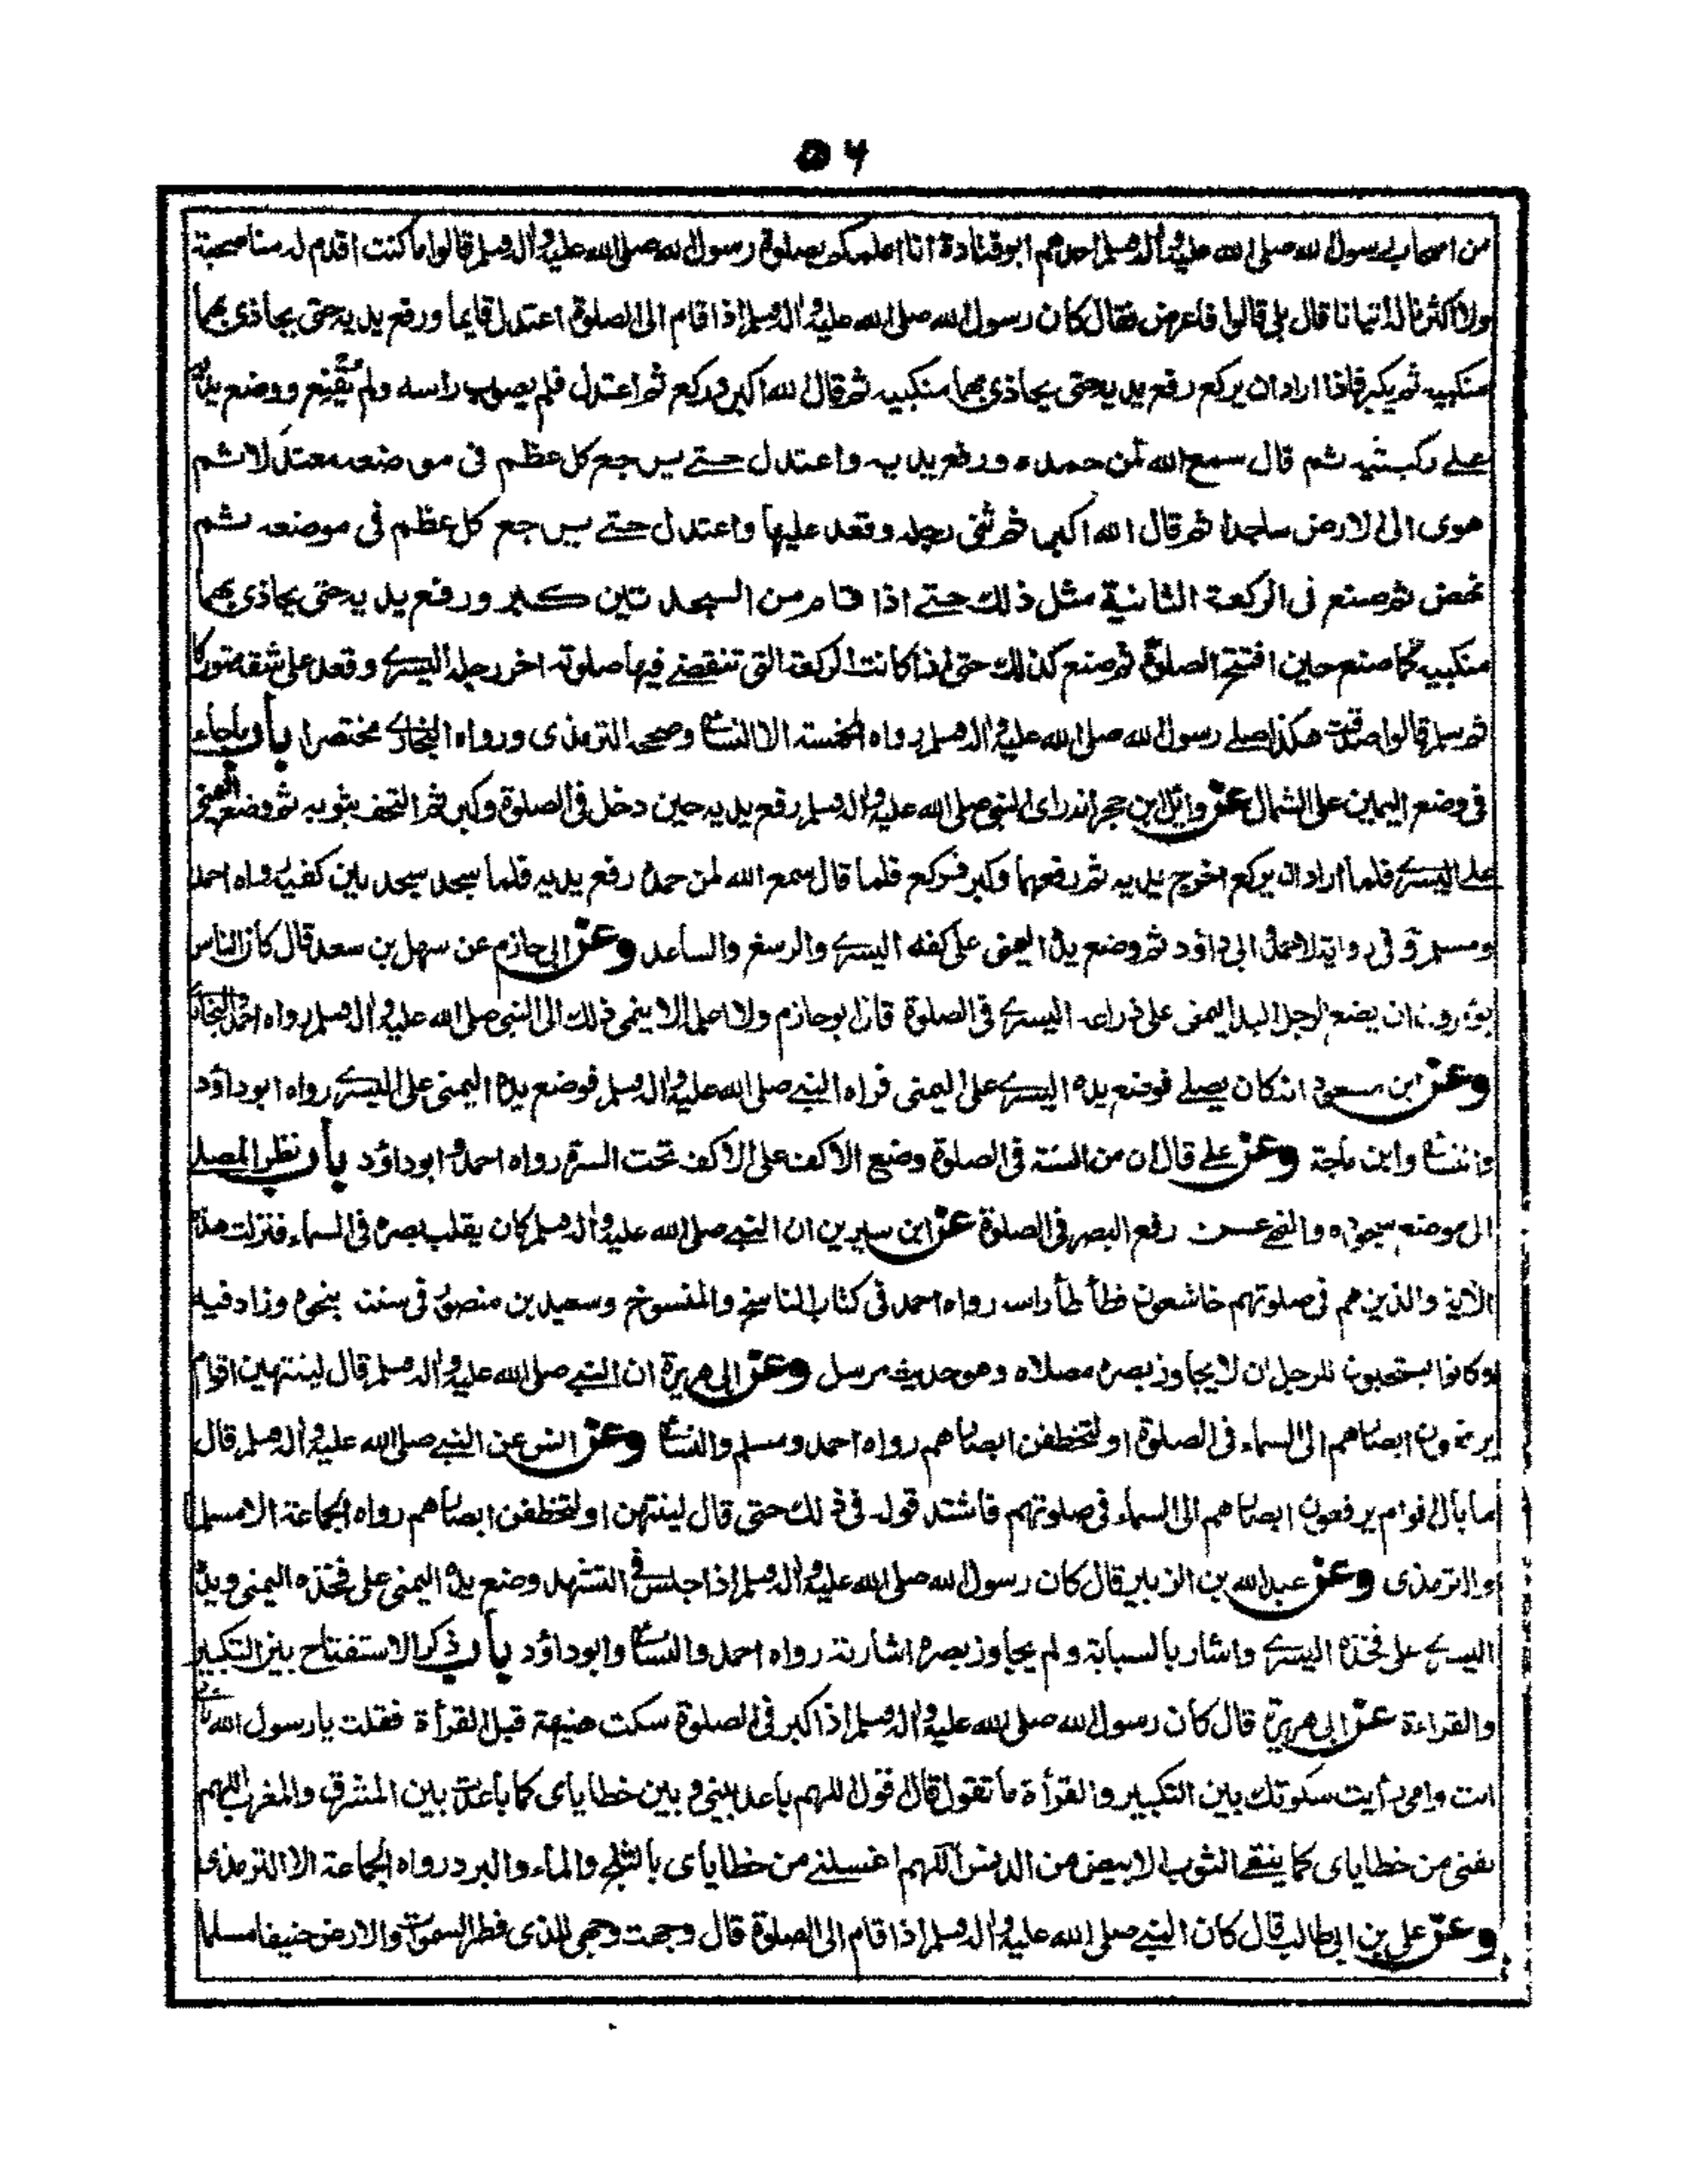 ٥٦
من اصحاب رسول الله صلى الله عليه واله وسلم احدهم ابو قتادة انا اعلمكم بصلوة رسول الله صلى الله عليه واله وسلم قالوا ما كنت اقدم له منا صحبة
ولا اكثرنا له اتيانا قال بلى قالوا فاعرض فقال كان رسول الله صلى الله عليه واله وسلم اذا قام الى الصلوة اعتدل قايما ورفع يديه حتى يحاذى بهما
منكبيه ثم يكبر فاذا اراد ان يركع رفع يديه حتى يحاذى بهما منكبيه ثم قال الله اكبر وركع ثم اعتدل فلم يصوب راسه ولم يقنع ووضع يديه
على ركبتيه ثم قال سمع الله لمن حمده ورفع يديه واعتدل حتے يرجع كل عظم فى موضعه معتدلا ثم
هوى الى الارض ساجدا ثم قال الله اكبر ثم ثنى رجله وقعد عليها واعتدل حتے يرجع كل عظم فى موضعه ثم
نهض ثم صنع فى الركعة الثانية مثل ذلك حتے اذا قام من السجدتين كبر ورفع يديه حتى يحاذى بهما
منكبيه كما صنع حين افتتح الصلوة ثم صنع كذلك حتى اذا كانت الركعة التى تنقضے فيها صلوته اخر رجله اليسرے وقعد على شقه متوركا
ثم سلم قالوا صدقت هكذا صلے رسول الله صلى الله عليه واله وسلم رواه الخمسة الا النسائ وصححه الترمذى ورواه البخارے مختصرا باب ماجاء
فى وضع اليمين على الشمال عن وائل ابن حجر انه راى النبى صلى الله عليه واله وسلم رفع يديه حين دخل فى الصلوة وكبر ثم التحف بثوبه ثم وضع اليمنى
على اليسرے فلما اراد ان يركع اخرج يديه ثم رفعهما وكبر فركع فلما قال سمع الله لمن حمده رفع يديه فلما سجد سجد بين كفيه رواه احمد
ومسلم وفى رواية لاحمد وابى داؤد ثم وضع يده اليمنى على كفه اليسرے والرسغ والساعد وعن ابى حازم عن سهل بن سعد قال كان الناس
يؤمرون ان يضع الرجل اليد اليمنى على ذراعه اليسرے فى الصلوة قال ابو حازم ولا اعلمه الا ينمى ذلك الى النبى صلى الله عليه واله وسلم رواه احمد والبخارے
وعن ابن مسعود انه كان يصلے فوضع يده اليسرے على اليمنى فراه النبے صلى الله عليه واله وسلم فوضع يده اليمنى على اليسرے رواه ابو داؤد
والنسائ وابن ماجة وعن علے قال ان من السنة فى الصلوة وضع الاكف على الاكف تحت السرة رواه احمد وابو داؤد باب نظر المصلے
الى موضع سجوده والنهے عن رفع البصر فى الصلوة عن ابن سيرين ان النبے صلى الله عليه واله وسلم كان يقلب بصره فى السماء فنزلت هذه
الاية والذين هم فى صلوتهم خاشعون فطأطأ راسه رواه احمد فى كتاب الناسخ والمنسوخ وسعيد بن منصور فى سننه بنحوه وزاد فيه
وكانوا يستحبون للرجل ان لا يجاوز بصره مصلاه وهو حديث مرسل وعن ابى هريرة ان النبے صلى الله عليه واله وسلم قال لينتهين اقوام
يرفعون ابصارهم الى السماء فى الصلوة او لتخطفن ابصارهم رواه احمد ومسلم والنسائ وعن انس عن النبے صلى الله عليه واله وسلم قال
ما بال اقوام يرفعون ابصارهم الى السماء فى صلوتهم فاشتد قوله فى ذلك حتى قال لينتهن او لتخطفن ابصارهم رواه الجماعة الا مسلما
والترمذى وعن عبد الله بن الزبير قال كان رسول الله صلى الله عليه واله وسلم اذا جلس فى التشهد وضع يده اليمنى على فخذه اليمنى ويده
اليسرے على فخذه اليسرے واشار بالسبابة ولم يجاوز بصره اشارته رواه احمد والنسائ وابو داؤد باب ذكر الاستفتاح بين التكبير
والقراءة عن ابى هريرة قال كان رسول الله صلى الله عليه واله وسلم اذا كبر فى الصلوة سكت هنيهة قبل القرأة فقلت يا رسول الله بابى
انت وامى رأيت سكوتك بين التكبير والقرأة ما تقول قال اقول اللهم باعد بينى وبين خطاياى كما باعدت بين المشرق والمغرب اللهم
نقنى من خطاياى كما ينقے الثوب الابيض من الدنس اللهم اغسلنے من خطاياى بالثلج والماء والبرد رواه الجماعة الا الترمذى
وعن على بن ابى طالب قال كان النبے صلى الله عليه واله وسلم اذا قام الى الصلوة قال وجهت وجهى للذى فطر السموات والارض حنيفا مسلما